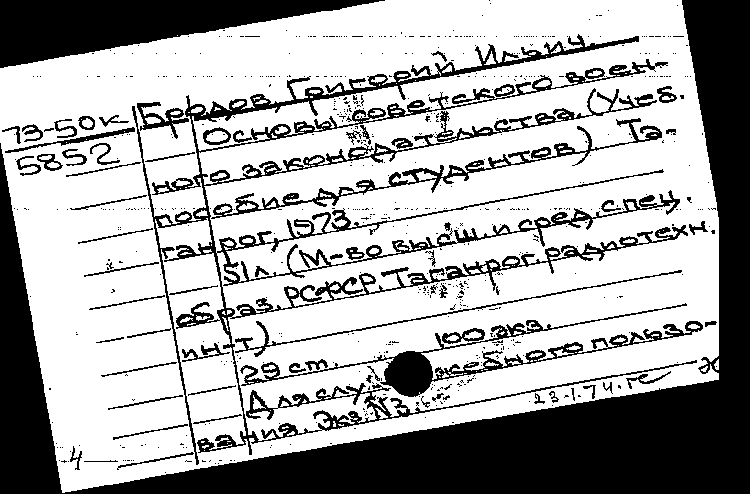 Бродов, Григорий Ильич.
73-50к
5852
Основы советского воен-
ного законодательства. (Учеб.
пособие для студентов) Та-
ганрог, 1973.
51л. (М-во высш. и сред. спец.
образ. РСФСР. Таганрог. радиотехн.
ин-т).
29 см. 100 экз.
Для слу- жебного пользо-
вания. Экз. N3.
23.1.74.
4